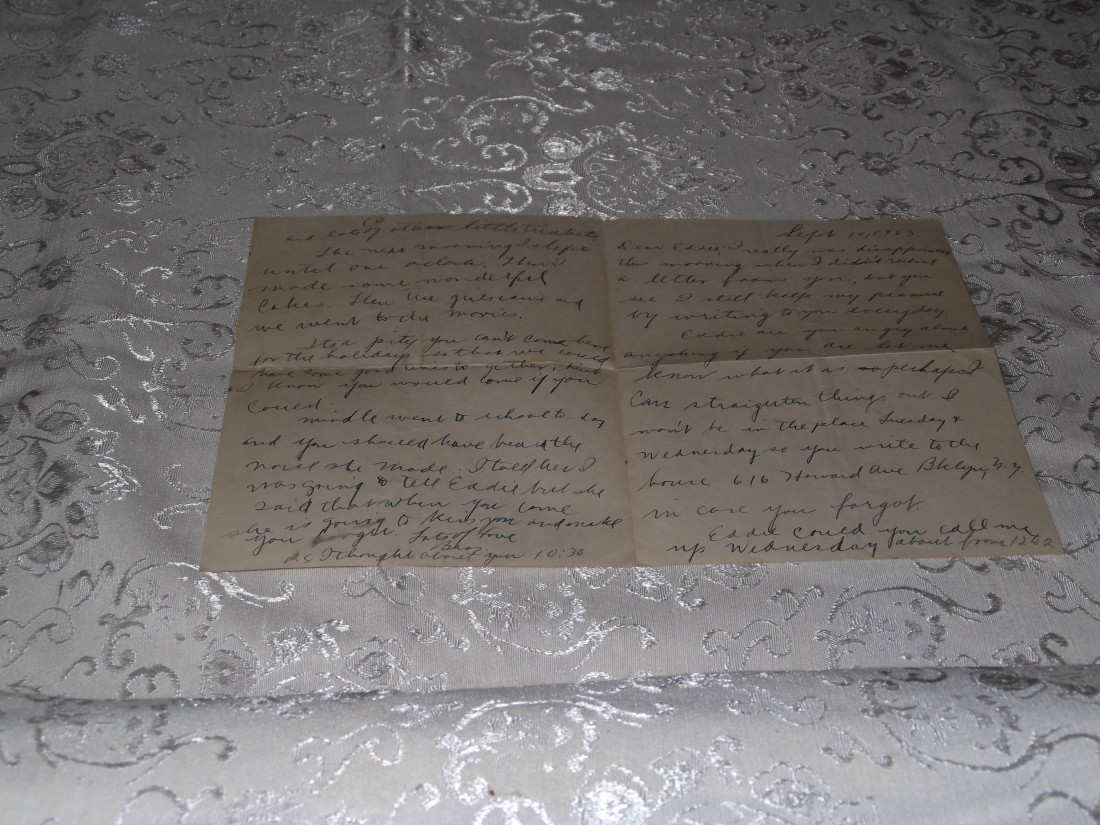 Sept 10, 1923
Dear Eddie, I really was disappointed
this morning when I didn't receive
a letter from you, but you
see I still keep my promise
by writing to you everyday.
Eddie are you angry about
anything if you are let me
know what it is so perhaps I
can straighten things out. I
won't be in the place Tuesday &
Wednesday so you write to the
house 616 Howard Ave Bklyn, N.Y.
in case you forgot.
Eddie could you call me
up Wednesday about from 12 to 2
and other little trinkets
The next morning I slept
until one o'clock. Then I
made some wonderful
Cakes. Then the girls came and
we went to the movies.
It's a pity you can't come here
for the holidays so that we could
have some good times together, but
I know you would come if you
could.
mindle went to school to-day
and you should have heard the
noise she made. I told her I
was going to tell Eddie but she
said that when you come
she is going to kiss you and make
you forget. Lots of love
P.S. I thought about you 10:30